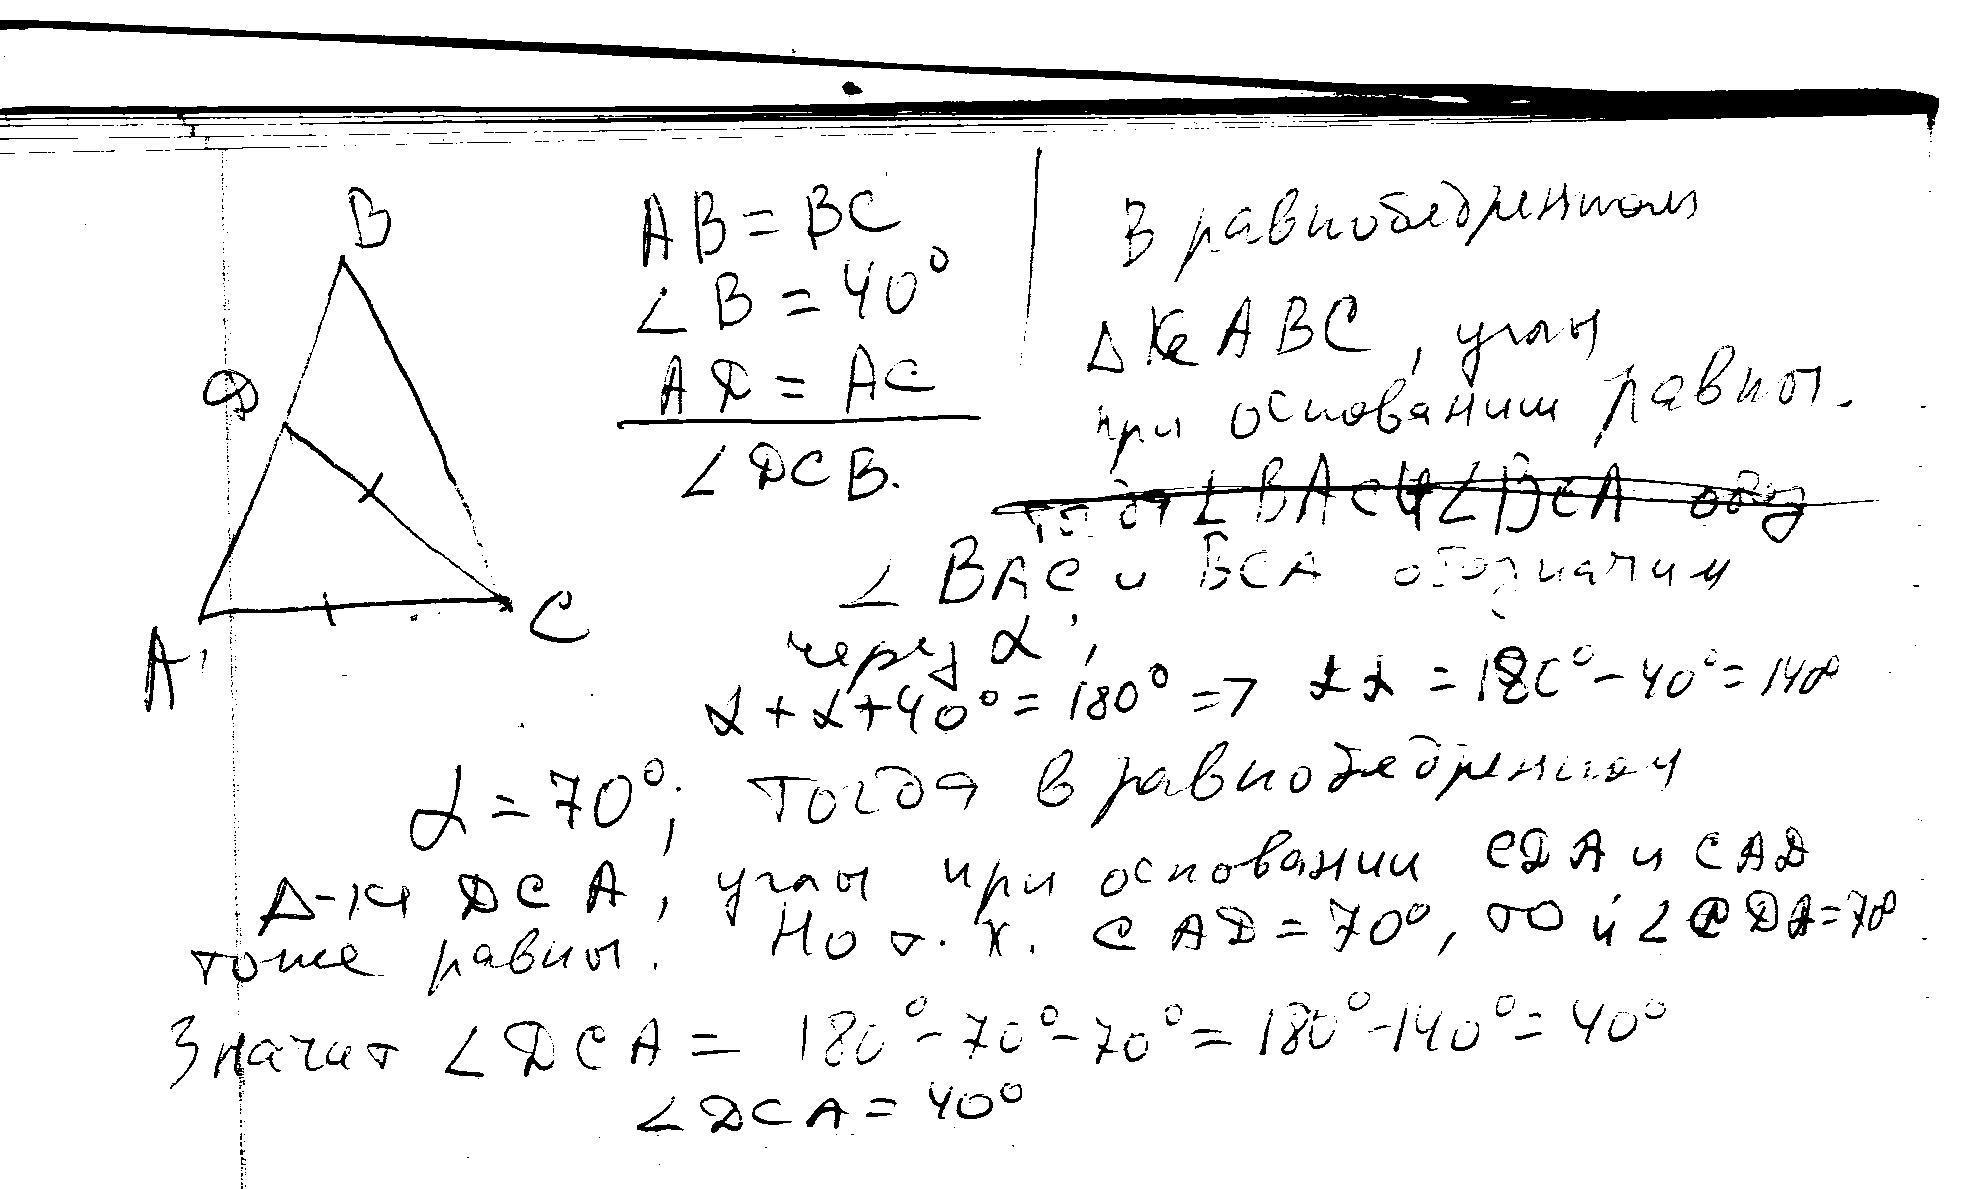 B
D
A
C
AB = BC
∠B = 40°
AD = AC
∠DCB.
В равнобедренном
Δ Ke ABC, углы
при основании равны.
∠BAC и ∠BCA обоз
∠ BAC и BCA обозначим
через α;
α + α + 40° = 180° => 2α = 180° - 40° = 140°
α = 70°; тогда в равнобедренном
Δ-ке DCA, углы при основании CDA и CAD
тоже равны. Но т.к. CAD = 70°, то и ∠CDA = 70
Значит ∠DCA = 180° - 70° - 70° = 180° - 140° = 40°
∠DCA = 40°